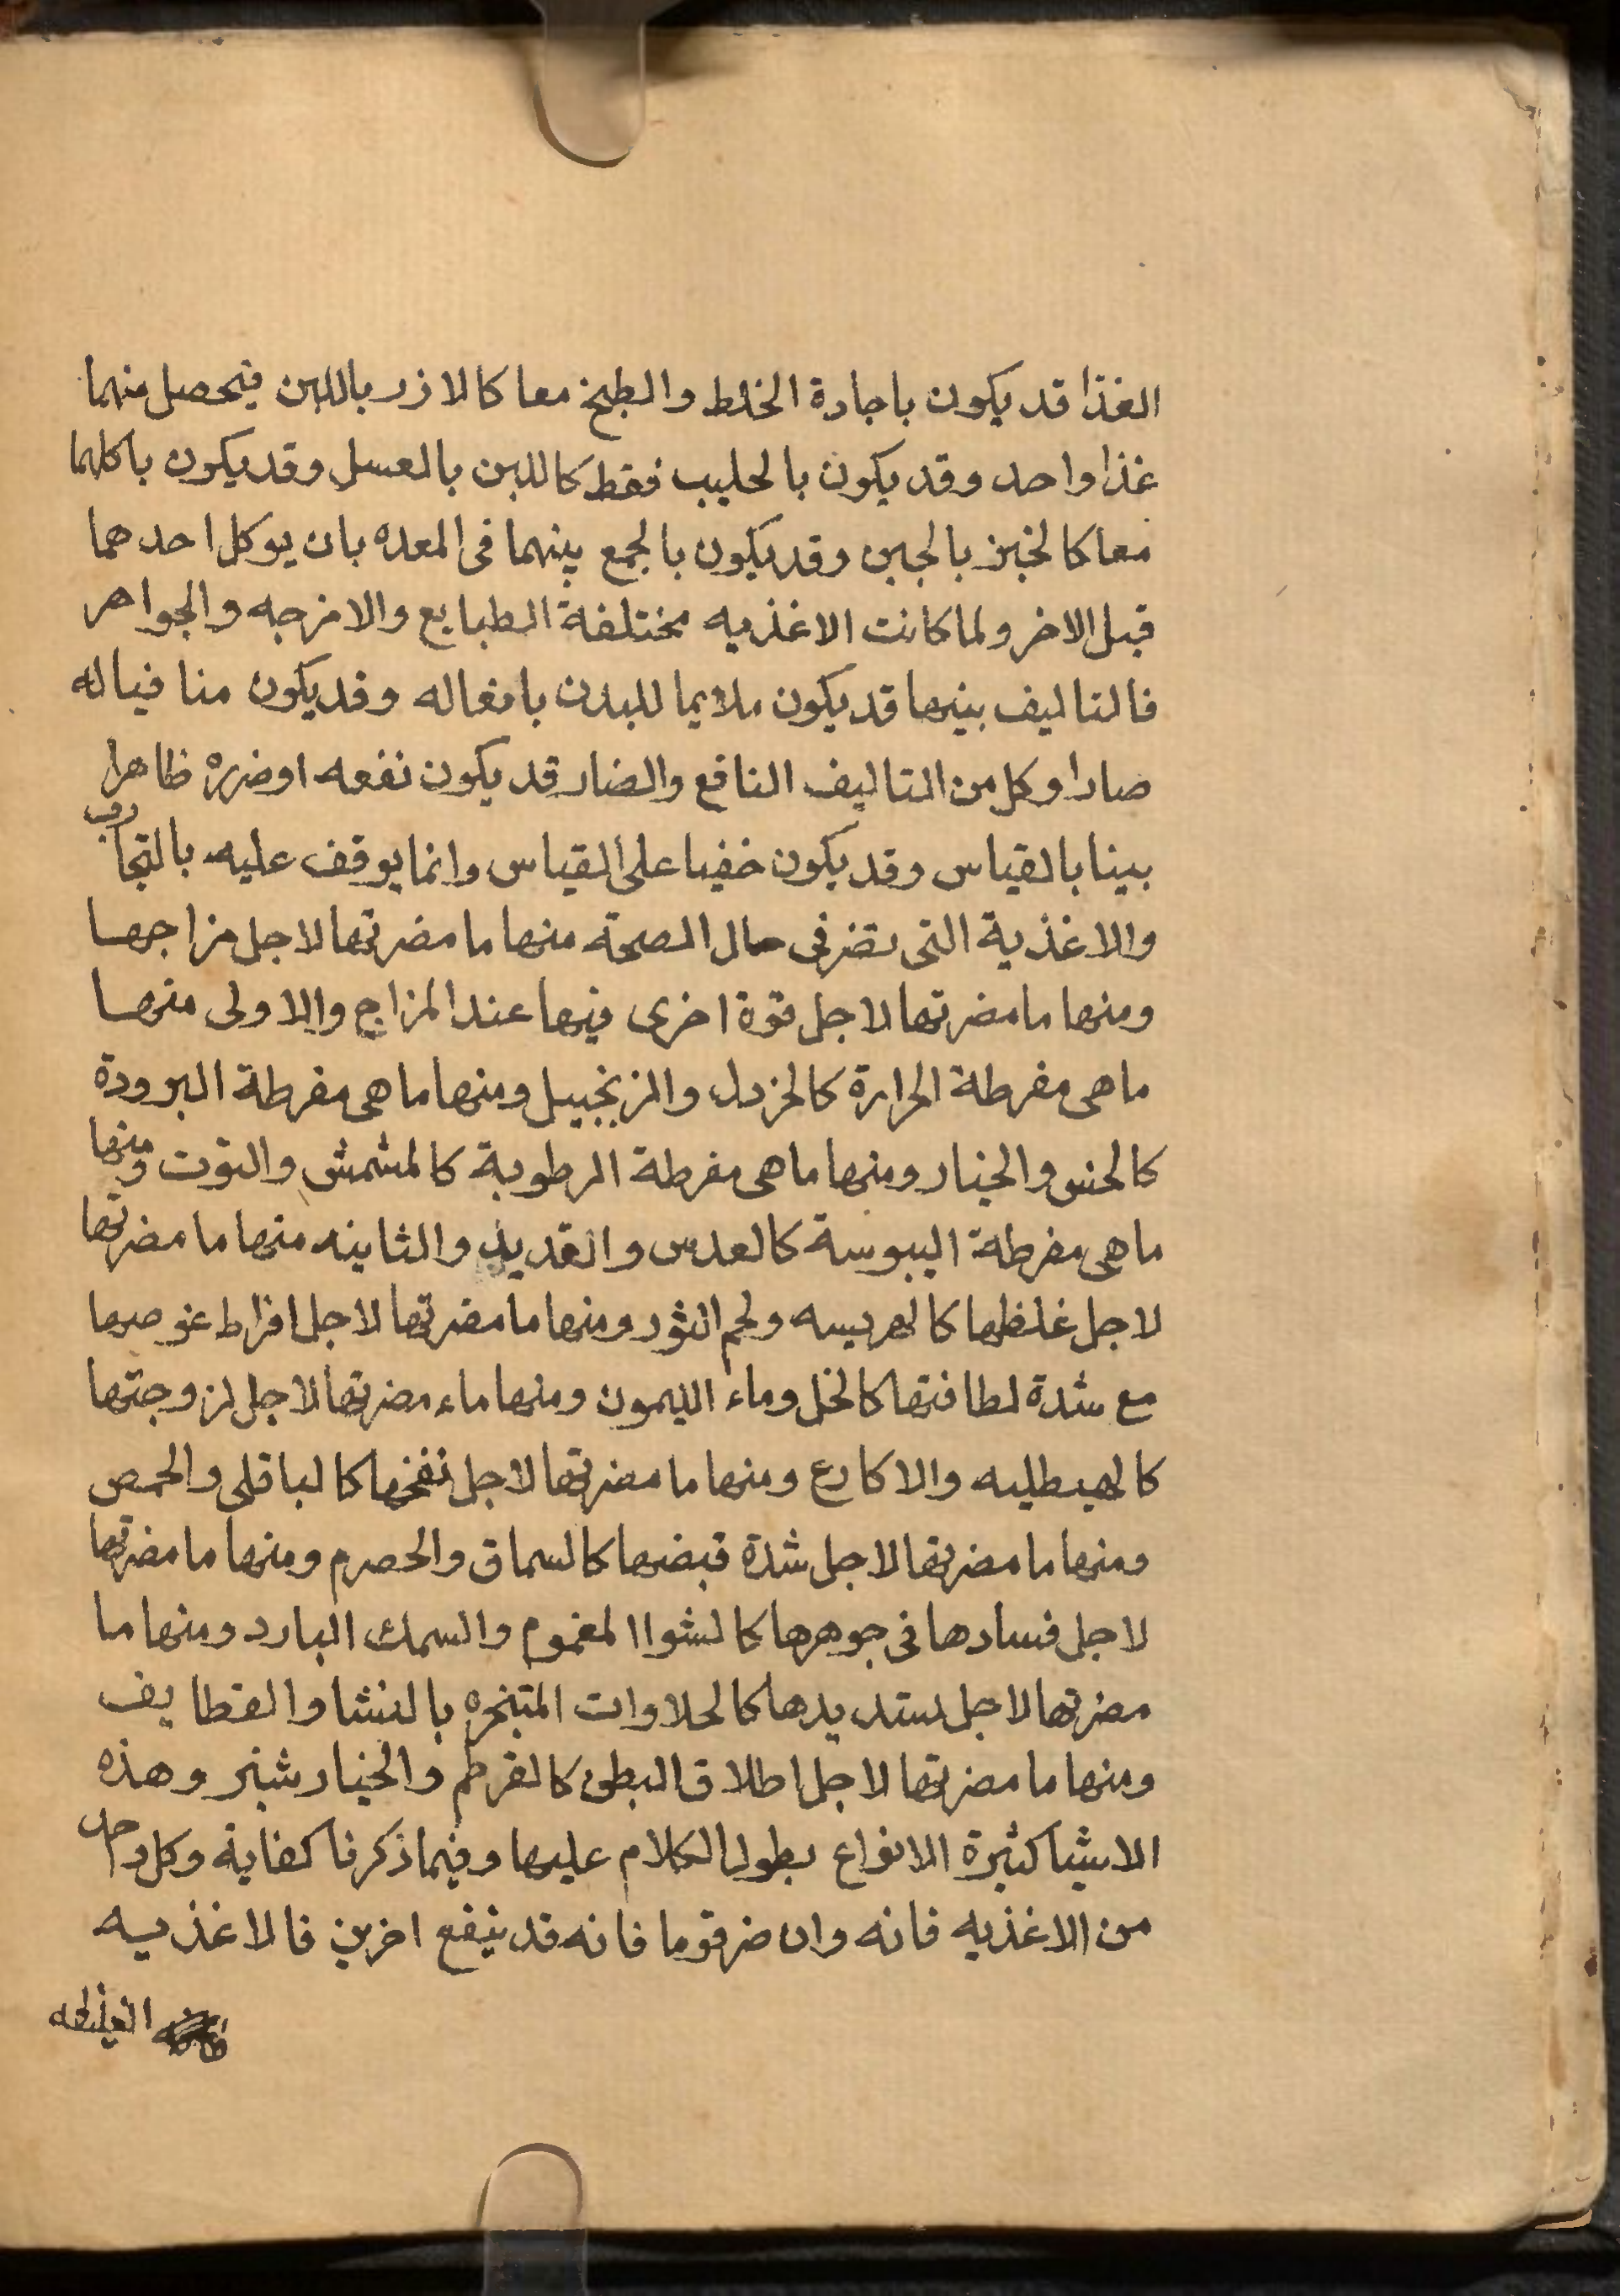 الغذا قد يكون باجادة الخلط والطبخ معا كالارز باللبن فيحصل منهما
غذا واحد وقد يكون بالحليب فقط كاللبن بالعسل وقد يكون باكلهما
معا كالخبز بالجبن وقد يكون بالجمع بينهما فى المعده بان يوكل احدهما
قبل الاخر ولما كانت الاغذيه مختلفة الطبايع والامزجه والجواهر
فالتاليف بينها قد يكون ملايما للبدن بافعاله وقد يكون منافيا له
صارا وكل من التاليف النافع والضار قد يكون نفعه او ضرره ظاهرا
بينا بالقياس وقد يكون خفيا على القياس وانما يوقف عليه بالتجارب
والاغذية التى تضر فى حال الصحة منها ما مضرتها لاجل مزاجها
ومنها ما مضرتها لاجل قوة اخرى فيها عند المزاج والاولى منها
ما هى مفرطة الحرارة كالخردل والزنجبيل ومنها ما هى مفرطة البرودة
كالخس والخيار ومنها ما هى مفرطة الرطوبة كالمشمش والتوت ومنها
ما هى مفرطة اليبوسة كالعدس والقديد والثانيه منها ما مضرتها
لاجل غلظها كالهريسه ولحم الثور ومنها ما مضرتها لاجل افراط غوصها
مع شدة لطافتها كالخل وماء الليمون ومنها ماء مضرتها لاجل لزوجتها
كالهيطليه والاكارع ومنها ما مضرتها لاجل نفخها كالباقلى والحمص
ومنها ما مضرتها لاجل شدة قبضها كالسماق والحصرم ومنها ما مضرتها
لاجل فسادها فى جوهرها كالشوا المغموم والسمك البارد ومنها ما
مضرتها لاجل تسديدها كالحلاوات المتخره بالنشا والقطايف
ومنها ما مضرتها لاجل اطلاق البطن كالقرطم والخيار شنبر وهذه
الاشيا كثيرة الانواع يطول الكلام عليها وفيما ذكرنا كفاية وكل واحد
من الاغذيه فانه وان ضر قوما فانه قد ينفع اخرين فالاغذيه
الغليظه